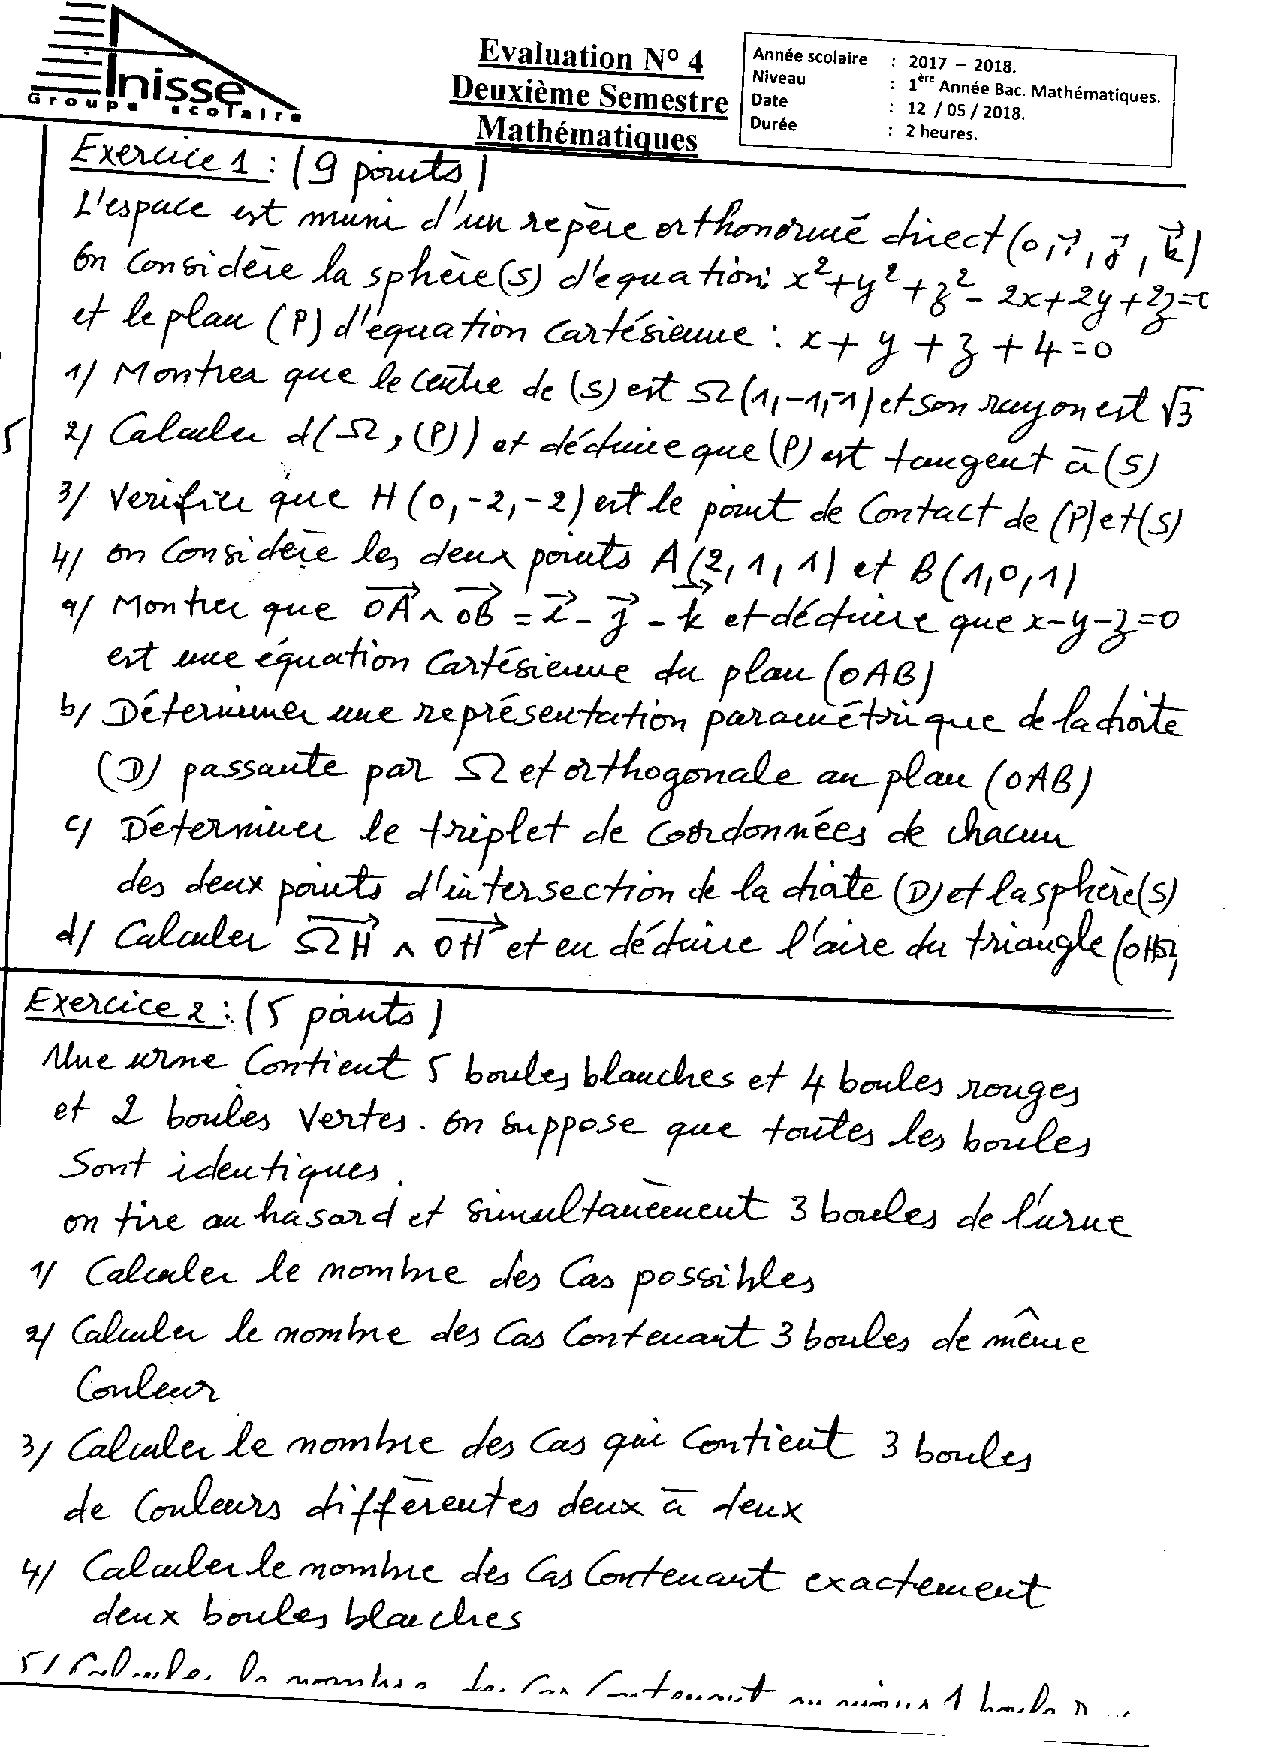 Anisse
Groupe scolaire
Evaluation N° 4
Deuxième Semestre
Mathématiques
Année scolaire : 2017 – 2018.
Niveau : 1ère Année Bac. Mathématiques.
Date : 12 / 05 / 2018.
Durée : 2 heures.
Exercice 1 : (9 points)
L'espace est muni d'un repère orthonormé direct (o, i⃗, j⃗, k⃗)
On considère la sphère (S) d'équation: x²+y²+z²-2x+2y+2z=0
et le plan (P) d'équation cartésienne : x + y + z + 4 = 0
1/ Montrer que le centre de (S) est Ω(1,-1,-1) et son rayon est √3
2/ Calculer d(Ω, (P)) et déduire que (P) est tangent à (S)
3/ Vérifier que H (0,-2,-2) est le point de Contact de (P) et (S)
4/ on Considère les deux points A(2,1,1) et B(1,0,1)
a/ Montrer que OA⃗ ∧ OB⃗ = i⃗ - j⃗ - k⃗ et déduire que x-y-z=0
est une équation Cartésienne du plan (OAB)
b/ Déterminer une représentation paramétrique de la droite
(D) passante par Ω et orthogonale au plan (OAB)
c/ Déterminer le triplet de coordonnées de chacun
des deux points d'intersection de la droite (D) et la sphère (S)
d/ Calculer ΩH⃗ ∧ OH⃗ et en déduire l'aire du triangle (OHΩ)
Exercice 2 : (5 points)
Une urne Contient 5 boules blanches et 4 boules rouges
et 2 boules Vertes. On suppose que toutes les boules
Sont identiques.
on tire au hasard et simultanément 3 boules de l'urne
1/ Calculer le nombre des Cas possibles
2/ Calculer le nombre des Cas Contenant 3 boules de même
Couleur
3/ Calculer le nombre des Cas qui Contient 3 boules
de Couleurs différentes deux à deux
4/ Calculer le nombre des Cas Contenant exactement
deux boules blanches
5/ Calculer le nombre des Cas Contenant au moins 1 boule